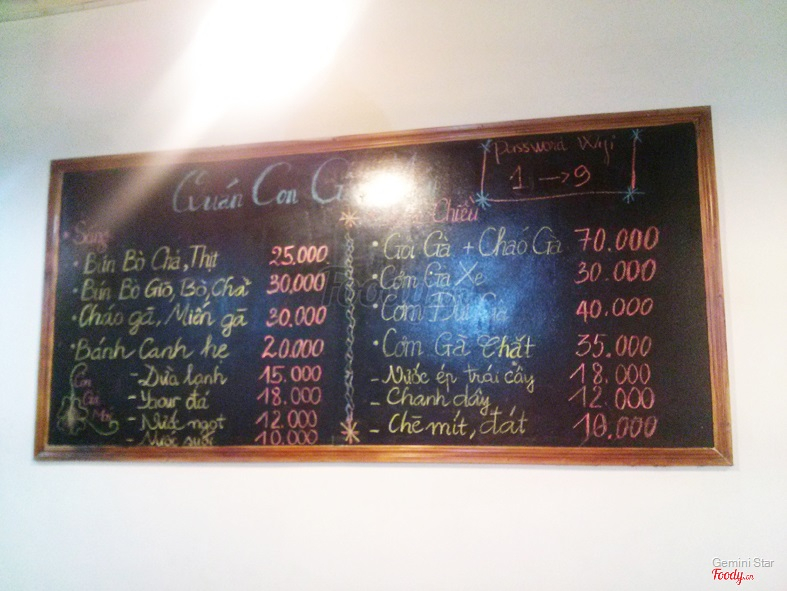 Password Wifi
1 → 9
Quán Con G
• Sáng
• Bún Bò Chả, Thịt 25.000
• Bún Bò Giò, Bò, Chả 30,000
• Cháo gà, Miến gà 30.000
• Bánh Canh hẹ 20.000
- Dừa lạnh 15.000
- Yaour đá 18.000
- Nước ngọt 12.000
- Nước suối 10.000
Chiều
• Gỏi Gà + Cháo Gà 70.000
• Cơm Gà Xé 30.000
• Cơm Đùi Gà 40.000
• Cơm Gà Chặt 35.000
- Nước ép trái cây 18.000
- Chanh dây 12.000
- Chè mít, đát 10.000
Foody
Gemini Star
Foody.vn